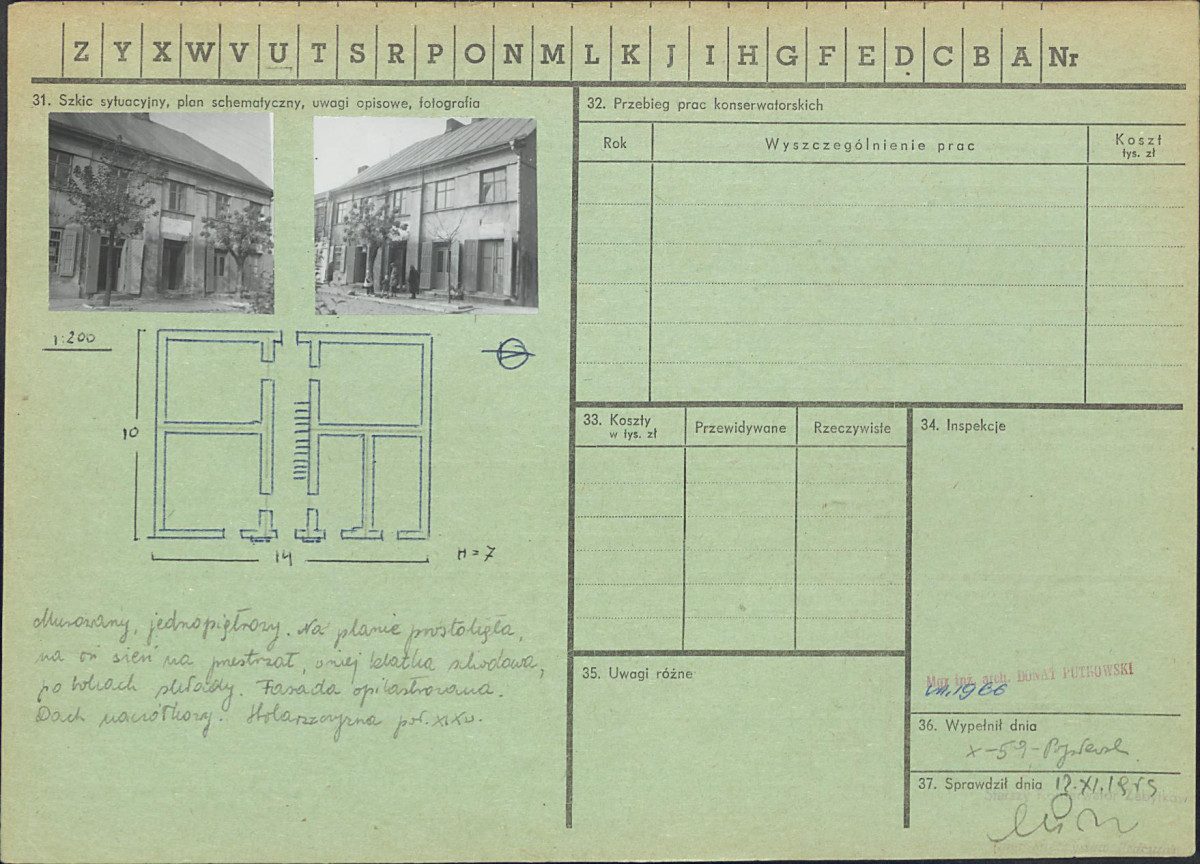 Z Y X W V U T S R P O N M L K J I H G F E D C B A Nr
31. Szkic sytuacyjny, plan schematyczny, uwagi opisowe, fotografia
1:200
10
14
H = 7
Murowany, jednopiętrowy. Na planie prostokąta,
na osi sień na przestrzał, w niej klatka schodowa,
po bokach składy. Fasada opilastrowana.
Dach naczółkowy. poł. XIX w.
32. Przebieg prac konserwatorskich
Rok
Wyszczególnienie prac
Koszt
tys. zł
33. Koszty
w tys. zł
Przewidywane
Rzeczywiste
34. Inspekcje
Mgr inż. arch. DONAT PUTKOWSKI
VII.1966
35. Uwagi różne
36. Wypełnił dnia
X-59
37. Sprawdził dnia 12.XI.1959